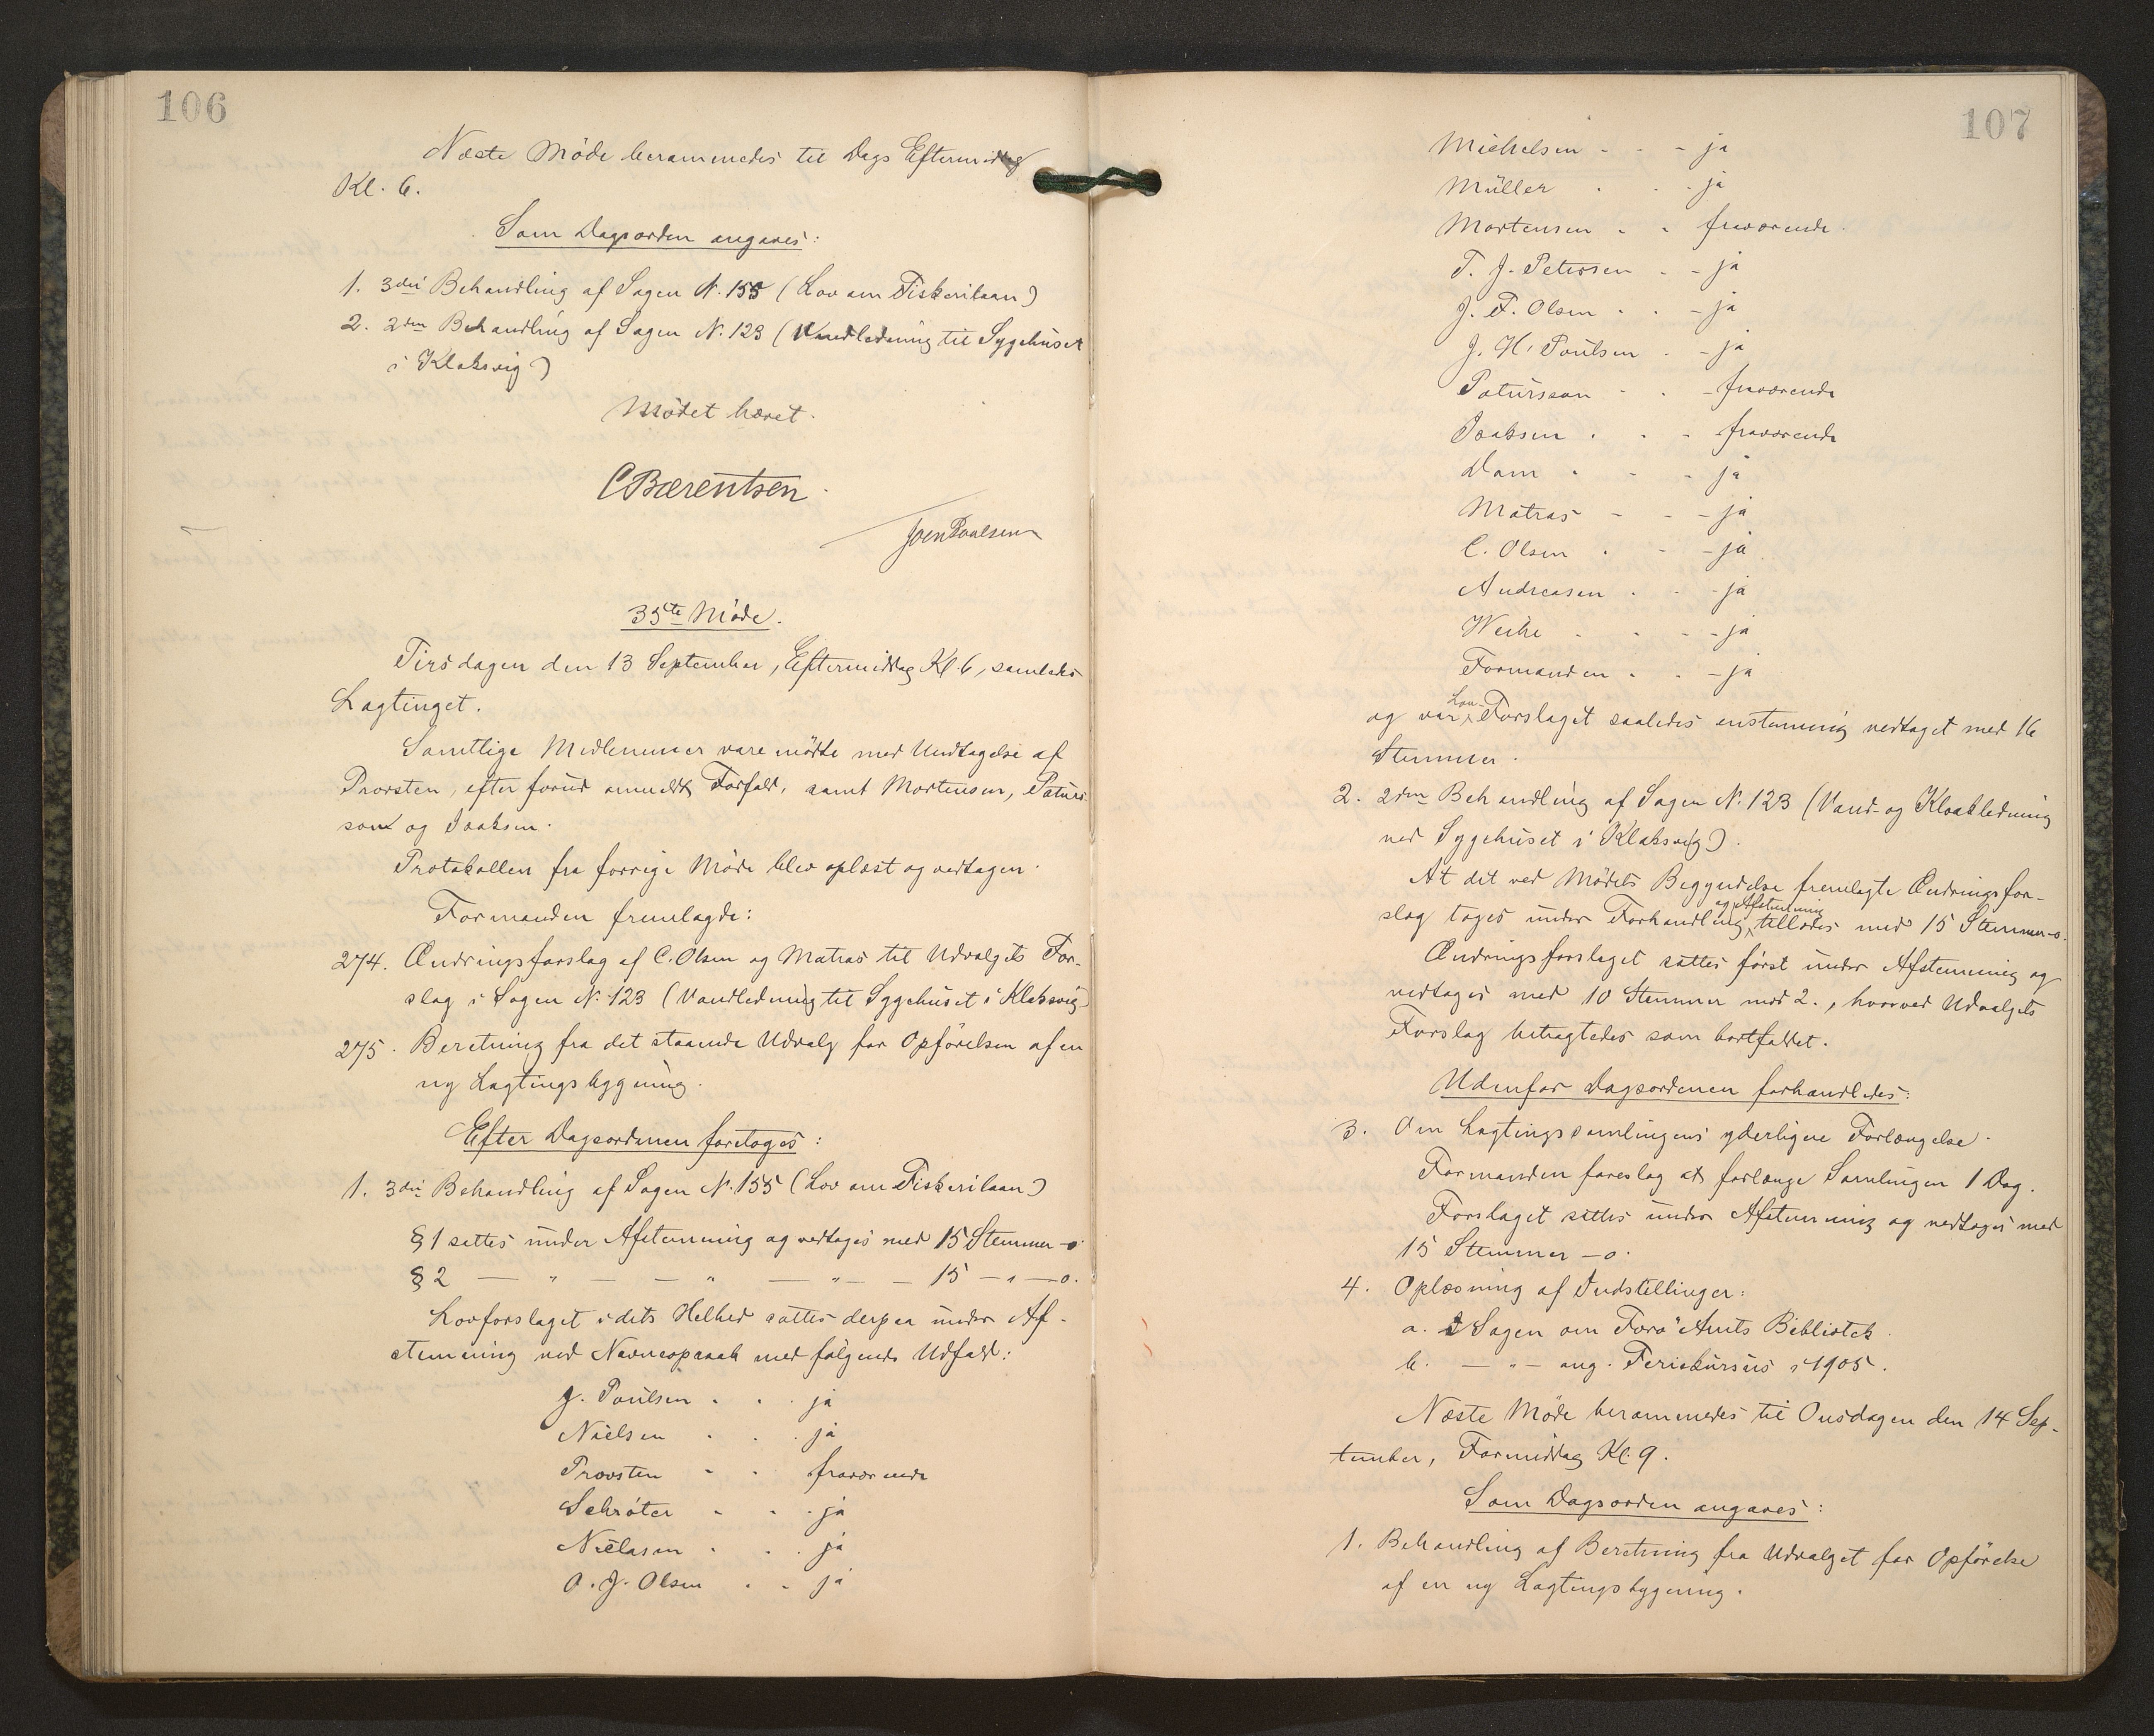 106
Næste Möde berammedes til Dags Eftermiddag
Kl. 6.
Som Dagsorden angaves:
1. 3die Behandling af Sagen N. 155 (Lov om Fiskerilaan)
2. 2den Behandling af Sagen N. 123 (Vandledning til Sygehuset
i Klaksvig)
Mödet hævet.
CBærentsen
Joen Poulsen
35te Möde.
Tirsdagen den 13 September, Eftermiddag Kl. 6, samledes
Lagtinget.
Samtlige Medlemmer vare mödte med Undtagelse af
Provsten, efter forud anmeldt Forfald, samt Mortensen, Paturs-
son og Isaksen.
Protokollen fra forrige Möde blev oplæst og vedtagen.
Formanden fremlagde:
274. Ændringsforslag af C. Olsen og Matras til Udvalgets For-
slag i Sagen N. 123 (Vandledning til Sygehuset i Klaksvig)
275. Beretning fra det staaende Udvalg for Opförelsen af en
ny Lagtingsbygning.
Efter Dagsordenen foretoges:
1. 3die Behandling af Sagen N. 155 (Lov om Fiskerilaan)
§ 1 sattes under Afstemning og vedtoges med 15 Stemmer – o
§ 2 — " — — " — " — — 15 — " — o.
Lovforslaget i dets Helhed sattes derpaa under Af-
stemning ved Navneopraab med fölgende Udfald:
J. Poulsen . . ja
Nielsen . . . ja
Provsten - . fraværende
Schröter - . . ja
Niclasen . . . ja
O. J. Olsen . . ja
107
Michelsen - - - ja
Müller . . . ja
Mortensen . . fraværende.
T. J. Petersen . - ja
J. F. Olsen . . - ja
J. H. Poulsen . - ja
Patursson - . - fraværende
Isaksen . . - fraværende
Dam . - - ja
Matras - - - ja
C. Olsen . - - ja
Andreasen . - - ja
Weihe - . - - ja
Formanden . . - ja
Lov-
og var Forslaget saaledes enstemmig vedtaget med 16
Stemmer.
2. 2den Behandling af Sagen N. 123 (Vand- og Kloakledning
ved Sygehuset i Klaksvig).
At det ved Mödets Begyndelse fremlagte Ændringsfor-
og Afstemning
slag toges under Forhandling tillodes med 15 Stemmer - o.
Ændringsforslaget sattes först under Afstemning og
vedtoges med 10 Stemmer mod 2., hvorved Udvalgets
Forslag betragtedes som bortfaldet.
Udenfor Dagsordenen forhandledes:
3. Om Lagtingssamlingens yderligere Forlængelse.
Formanden foreslog at forlænge Samlingen 1 Dag.
Forslaget sattes under Afstemning og vedtoges med
15 Stemmer – o.
4. Oplæsning af Indstillinger:
a. I Sagen om Færö Amts Bibliotek.
b. — " — ang. Feriekursus i 1905.
Næste Möde berammedes til Onsdagen den 14 Sep-
tember, Formiddag Kl. 9.
Som Dagsorden angaves:
1. Behandling af Beretning fra Udvalget for Opförelse
af en ny Lagtingsbygning.